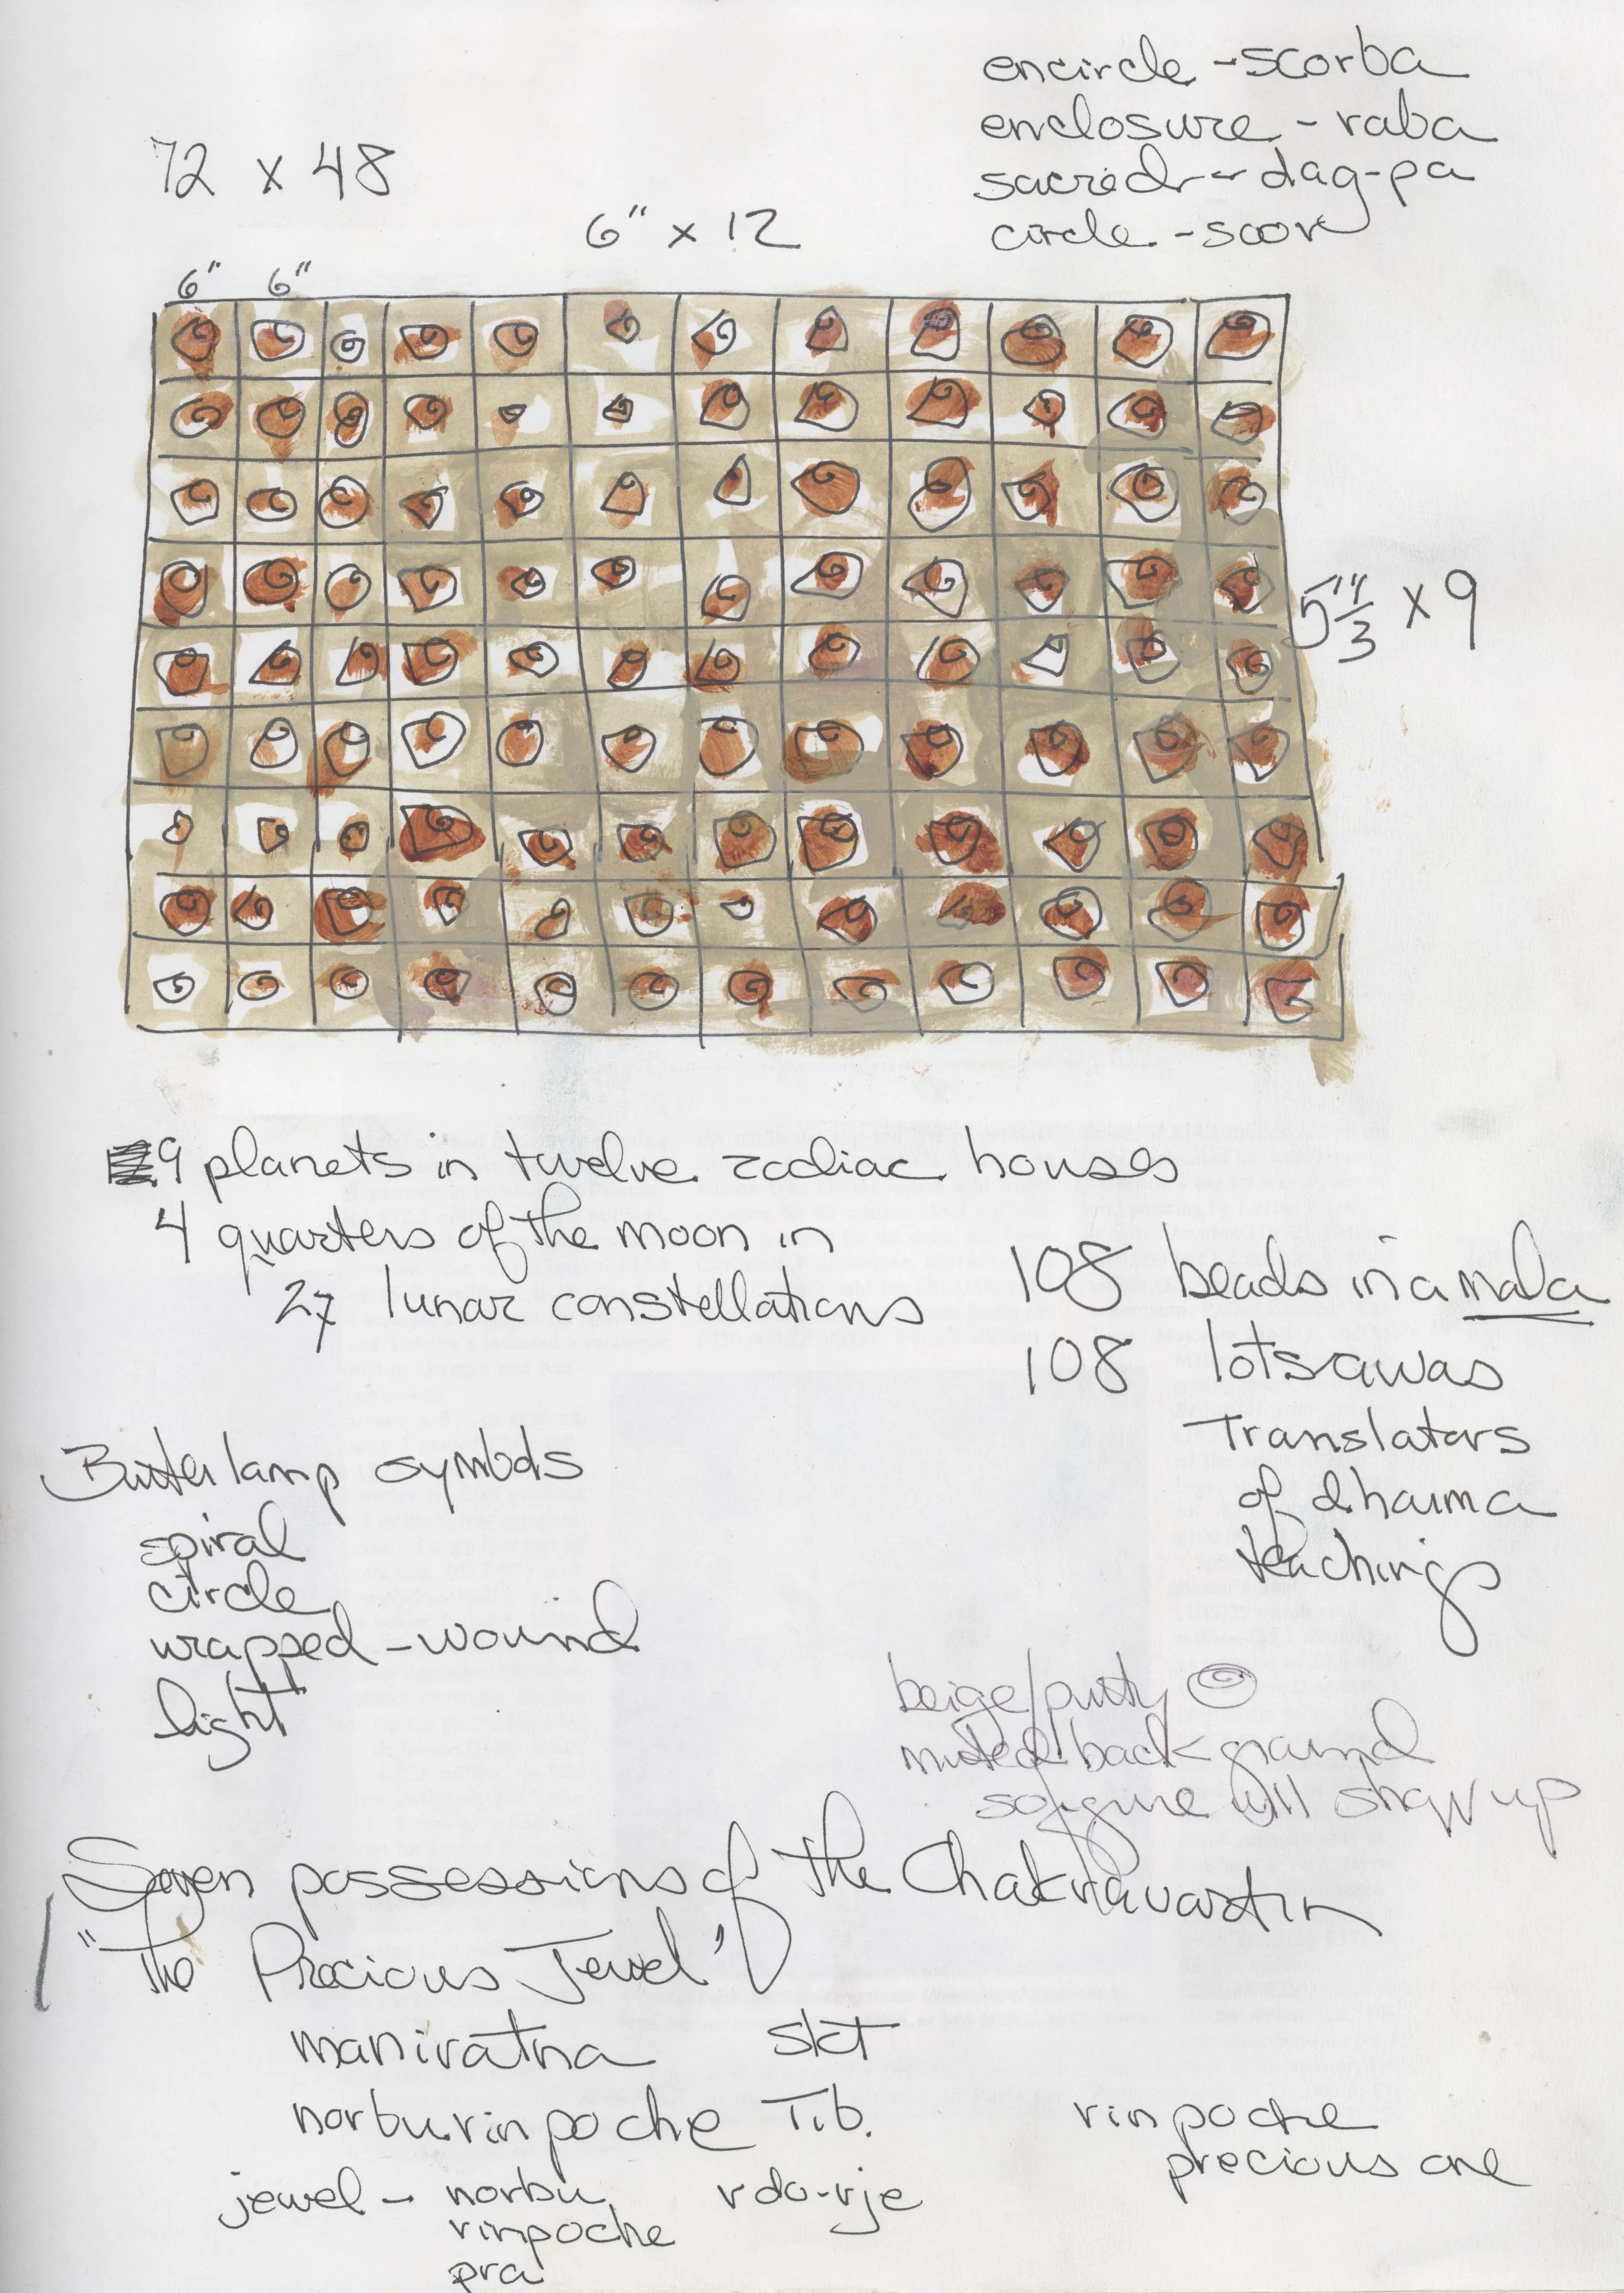 encircle - scorba
enclosure - raba
sacred - dag-pa
circle - scor
72 x 48
6" x 12
6" 6"
5 1/3" x 9
9 planets in twelve zodiac houses
4 quarters of the moon in
27 lunar constellations
108 beads in a mala
108 lotsawas
Translators
of dharma
teachings
Butter lamp symbols
spiral
circle
wrapped - wound
light
beige/putty
muted background
so figure will show up
Seven possessions of the Chakravartin
"The Precious Jewel"
maniratna skt
norbu rinpoche Tib.
rinpoche
precious one
jewel - norbu rdo-rje
rinpoche
pra